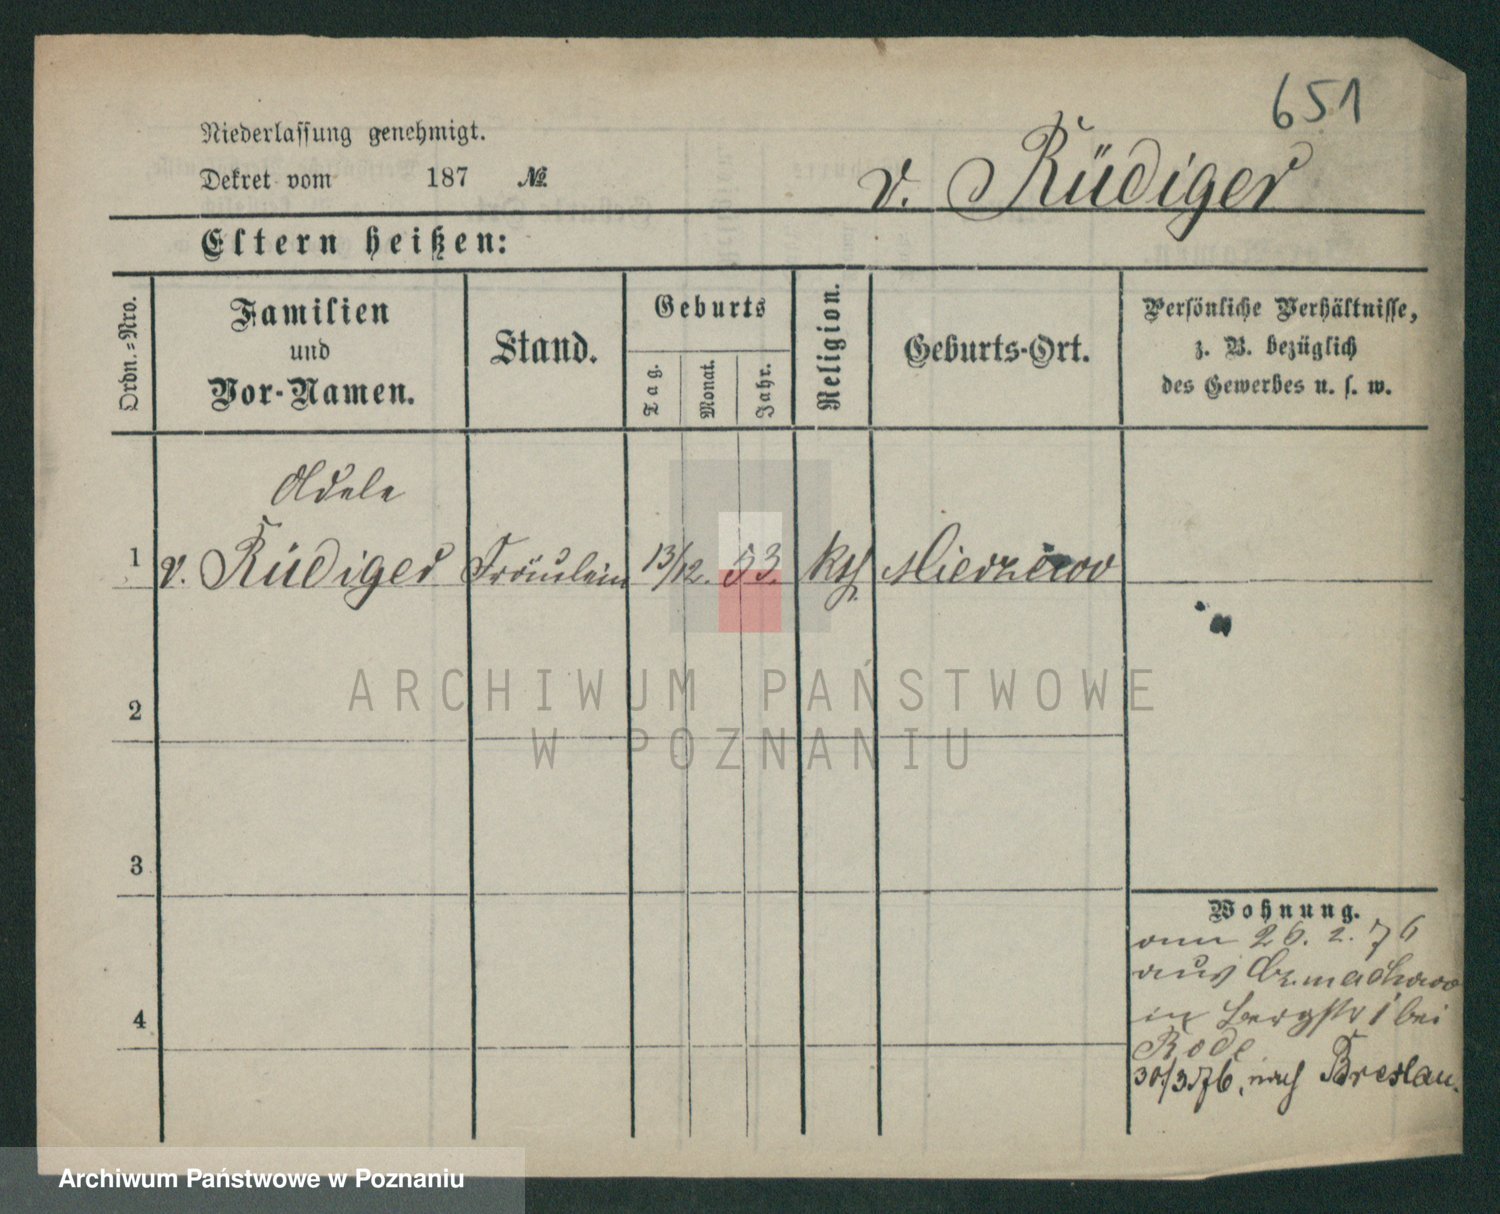 651
Niederlassung genehmigt.
Dekret vom 187 №
v. Rüdiger
Eltern heißen:
Ordn.-Nro.
Familien
und
Vor-Namen.
Stand.
Geburts
Tag.
Monat.
Jahr.
Religion.
Geburts-Ort.
Persönliche Verhältnisse,
z. B. bezüglich
des Gewerbes u. s. w.
Adele
1 v. Rüdiger Fräulein 13/12. 53. kth
2
ARCHIWUM PAŃSTWOWE
W POZNANIU
3
Wohnung.
26. 2. 76
aus
in Bergstr 1 bei
4
Rode
30/3 76, nach Breslau.
Archiwum Państwowe w Poznaniu